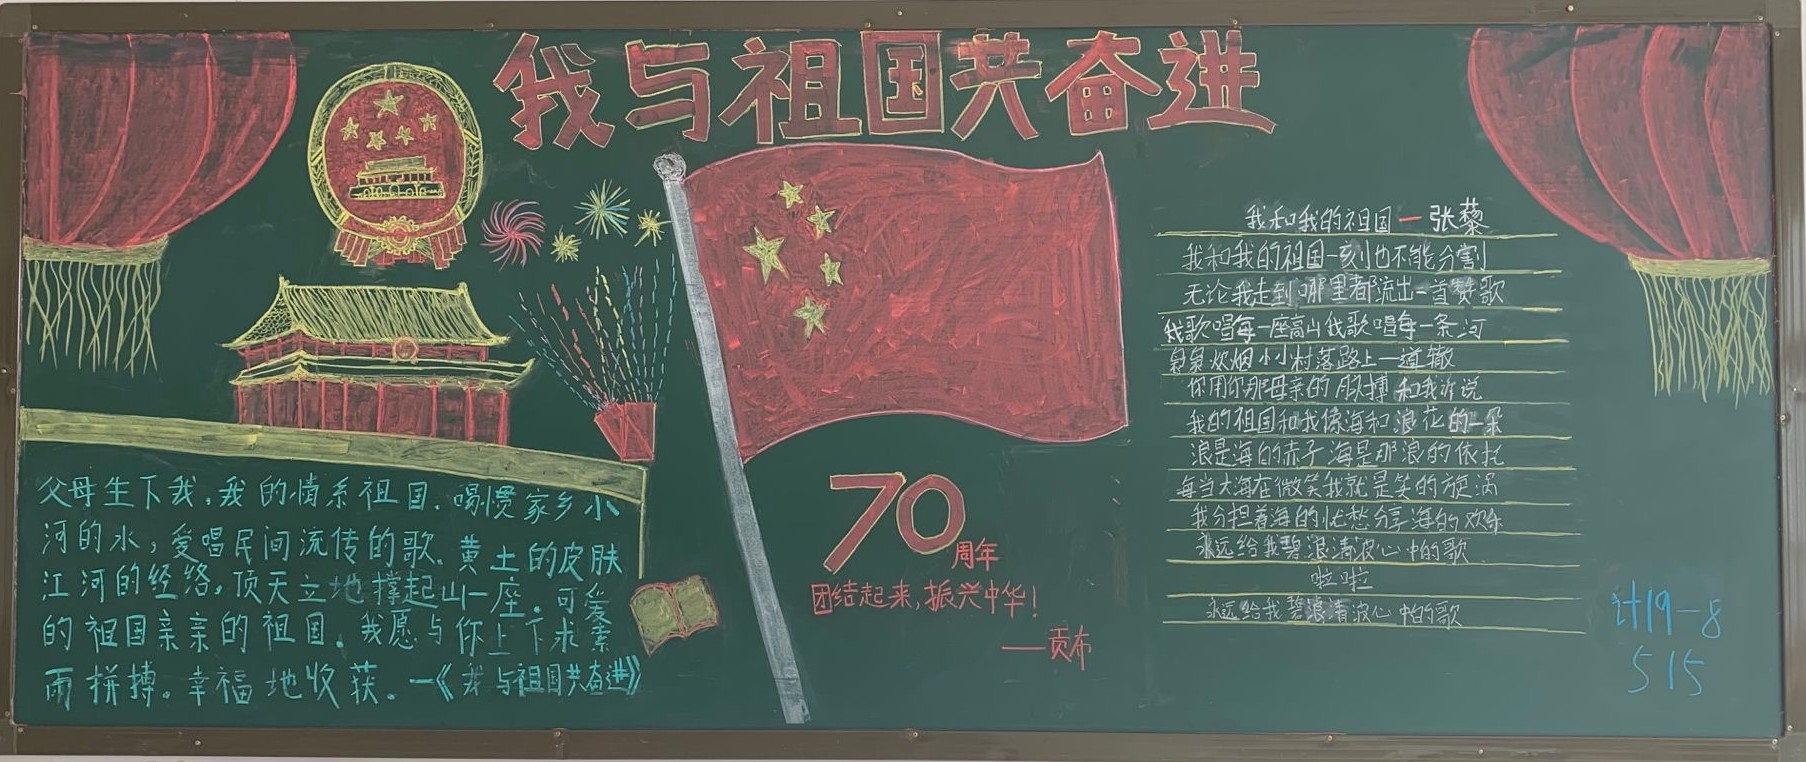 我与祖国共奋进
父母生下我,我的情系祖国.喝惯家乡小
河的水,爱唱民间流传的歌.黄土的皮肤
江河的经络.顶天立地撑起山一座.可爱
的祖国亲亲的祖国.我愿与你上下求索
雨拼搏.幸福地收获.一《我与祖国共奋进》
70
周年
团结起来,振兴中华!
——贡布
我和我的祖国一张藜
我和我的祖国一刻也不能分割
无论我走到哪里都流出一首赞歌
我歌唱每一座高山我歌唱每一条河
袅袅炊烟小小村落路上一道辙
你用你那母亲的脉搏和我诉说
我的祖国和我像海和浪花的一朵
浪是海的赤子海是那浪的依托
每当大海在微笑我就是笑的旋涡
我分担着海的忧愁分享海的欢乐
永远给我碧浪清波心中的歌
啦啦
永远给我碧浪清波心中的歌
计19-8
515